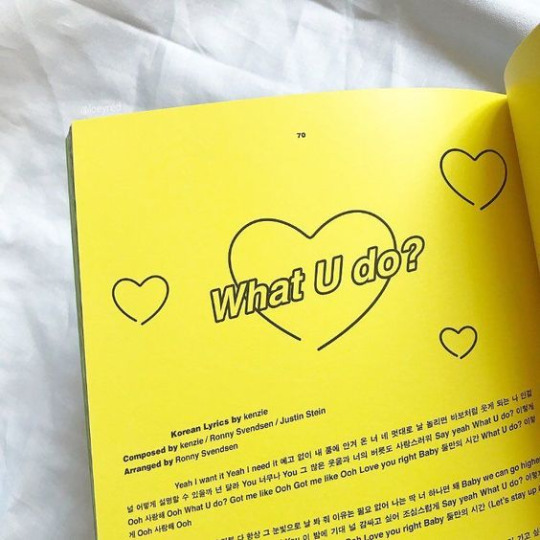 70
What U do?
Korean Lyrics by kenzie
Composed by kenzie / Ronny Svendsen / Justin Stein
Arranged by Ronny Svendsen
Yeah I want it Yeah I need it 예고 없이 내 품에 안겨 온 너 네 멋대로 날 놀리면 바보처럼 웃게 되는 나 인걸
널 어떻게 설명할 수 있을까 넌 달라 You 너무나 You 그 많은 웃음과 너의 버릇도 사랑스러워 Say yeah What U do? 이렇게
Ooh 사랑해 Ooh What U do? Got me like Ooh Got me like Ooh Love you right Baby 둘만의 시간 What U do? 이렇
게 Ooh 사랑해 Ooh
다 항상 그 눈빛으로 날 봐 줘 이유는 필요 없어 나는 딱 너 하나면 돼 Baby we can go higher
You 이 밤에 기대 널 감싸고 싶어 조심스럽게 Say yeah What U do? 이렇게
Ooh Love you right Baby 둘만의 시간 (Let's stay up